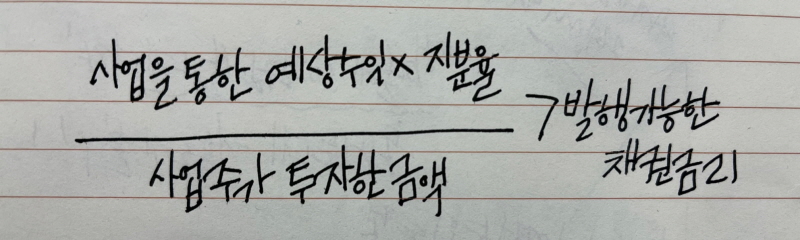 사업을 통한 예상수익 × 지분율
사업주가 투자한 금액
> 발행가능한
채권금리